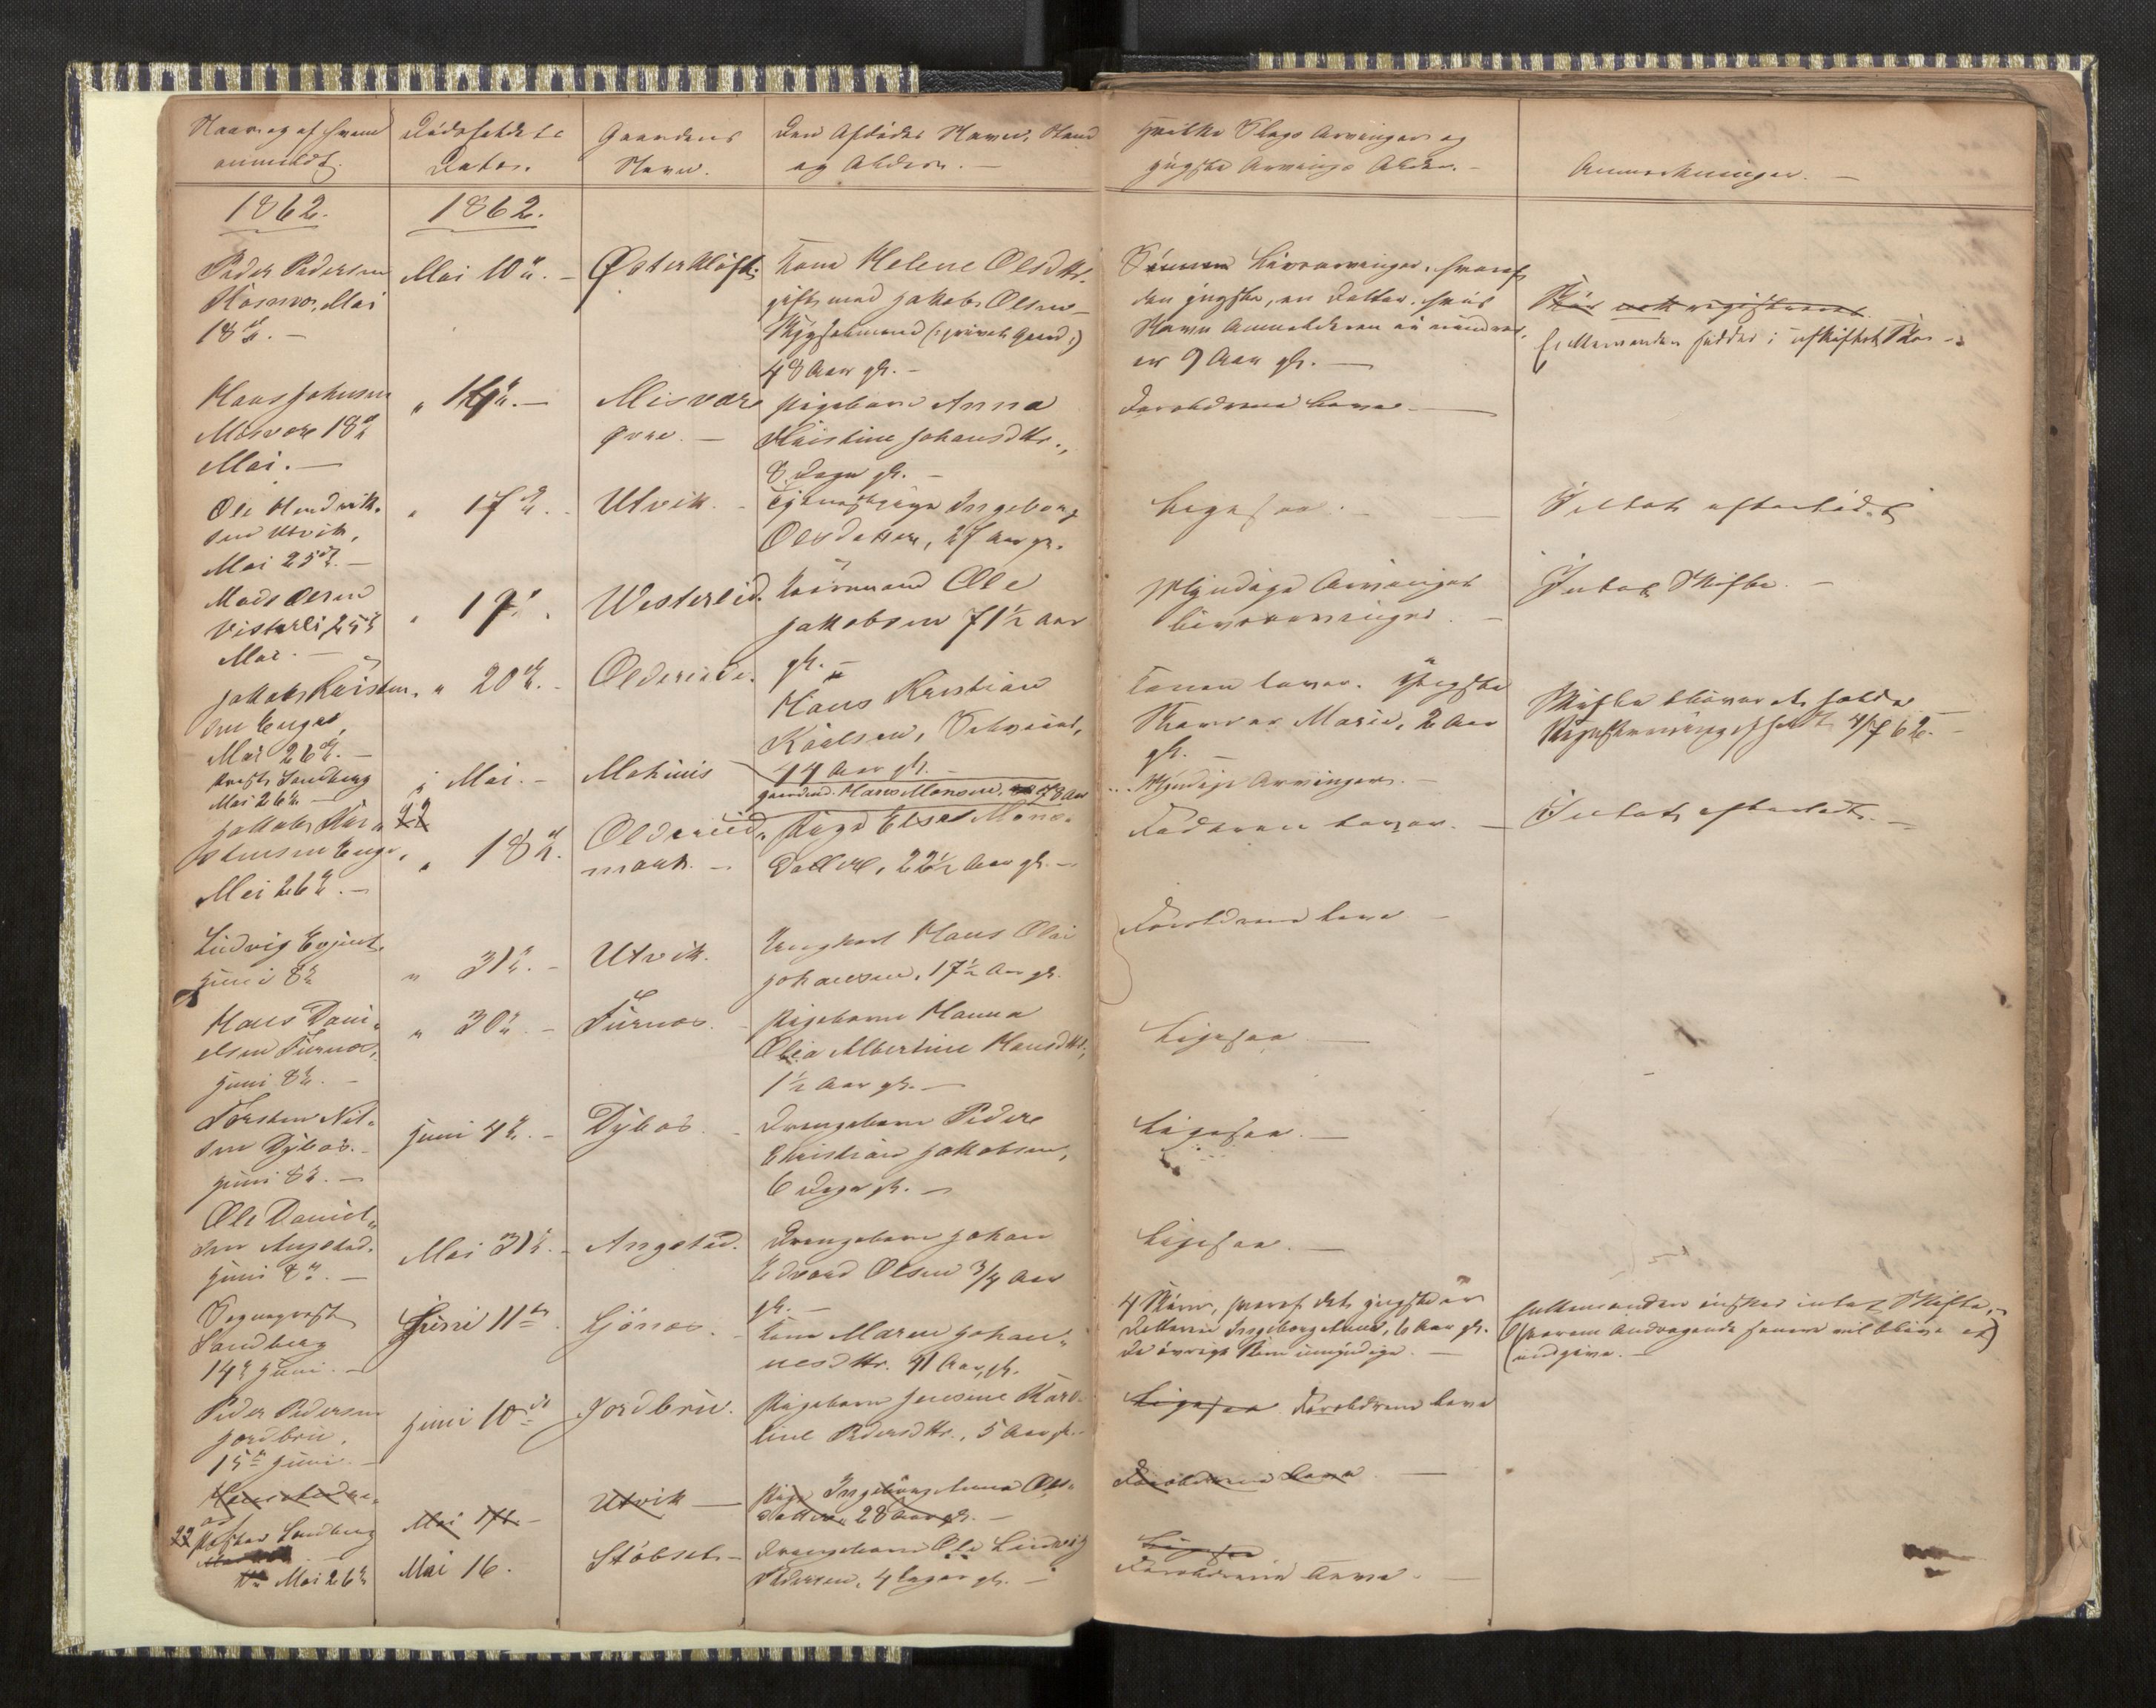 Naar og af hvem
anmeldt.
Dødsfaldets
Dato.
Gaardens
Navn.
Den Afdødes Navn, Stand
og Alder. —
Hvilke Slags Arvinger og
yngste Arvings Alder. —
Anmerkninger. —
1862.
1862.
Peder Pedersen
Mai
18de. —
Mai 10de. —
Kone Helene Olsdtr.
gift med Jakob Olsen
48 Aar gl. —
Livsarvinger, hvoraf
den yngste, en Datter, hvis
Navn Anmelderen ei
er 9 Aar gl. —
Enkemanden sidder i uskiftet Bo —
Hans Johnsen
Misvær 18de
Mai. —
" 14de. —
Misvær
øvre. —
Pigebarn Anna
Kristine Johansdtr.,
8 Dage gl. —
Forældrene lever —
Ole Hendrik-
sen Utvik,
Mai 25de. —
" 17de. —
Utvik. —
Tjenestepige Ingeborg
Olsdatter, 27 Aar gl.
Ligesaa. —
Intet efterladt
Mads Olsen
Vesterli 25de
Mai. —
" 19de.
Westerlid.
Kaarmand Ole
Jakobsen 71½ Aar
gl. —
Myndige Arvinger
Livsarvinger. —
Intet Skifte. —
Jakob Kristen-
sen Enge,
Mai 26de. —
" 20de. —
Oldereide.
Hans Kristian
44 Aar gl. —
Konen lever. Yngste
Marie, 2 Aar
gl. —
Skifte bliver at holde
4/7 62. —
Sandberg
Mai 26de —
i Mai. —
Gaardmd. Hans Monsen, 78 Aar
Myndige Arvinger. —
Jakob Kri-
stensen Enge,
Mai 26de. —
22
" 18de.
Oldereid-
mark. —
Pige Else Mons-
datter, 22½ Aar gl. —
Faderen lever. —
Intet efterladt. —
Ludvig Evjent
Juni 8de
" 31te. —
Utvik.
Ungkarl Hans Olai
Johansen, 17½ Aar gl.
Forældrene leve —
Hans Dani-
elsen Furnes,
Juni 8de. —
" 30te. —
Furnes. —
Pigebarn Hanna
Olea Albertine Hansdtr.,
1½ Aar gl. —
Ligesaa —
Torsten Nil-
sen Dybos. —
Juni 8de. —
Juni 4de. —
Dybos. —
Drengebarn Peder
Christian Jakobsen,
6 Dage gl. —
Ligesaa. —
Ole Daniel-
sen Angstad.
Juni 8de. —
Mai 31te. —
Angstad.
Drengebarn Johan
Edvard Olsen 3/4 Aar
gl. —
Ligesaa. —
Sogneprest
Sandberg
14de Juni. —
Juni 11te.
Ljönes. —
Kone Maren Johan-
nesdtr. 41 Aar gl.
4 Børn, hvoraf det yngste er
Datteren Ingeborg Anna, 6 Aar gl.
De øvrige Børn umyndige. —
Enkemanden ønsker intet Skifte,
hvorom Andragende senere vil blive at
indgive. —
Peder Pedersen
Jordbru,
15de Juni. —
Juni 10de
Jordbru.
Pigebarn Jensine Karo-
line Pedersdtr., 5 Aar gl.
Ligesaa Forældrene leve
Mai 17de —
Utvik —
Pige Ingeborg Anna Ols-
datter, 28 Aar gl. —
Forældrene leve —
22 Sandberg
Mai 26de
Mai 16.
Drengebarn Ole Ludvig
Pedersen, 4 Dage gl. —
Ligesaa
Forældrene leve. —